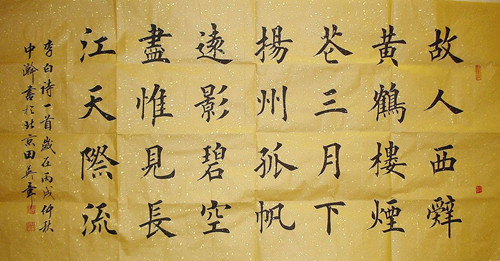 故人西辭
黃鶴樓煙
花三月下
揚州孤帆
遠影碧空
盡惟見長
江天際流
李白诗一首歲在丙戌仲秋
中澣書於北京田英章